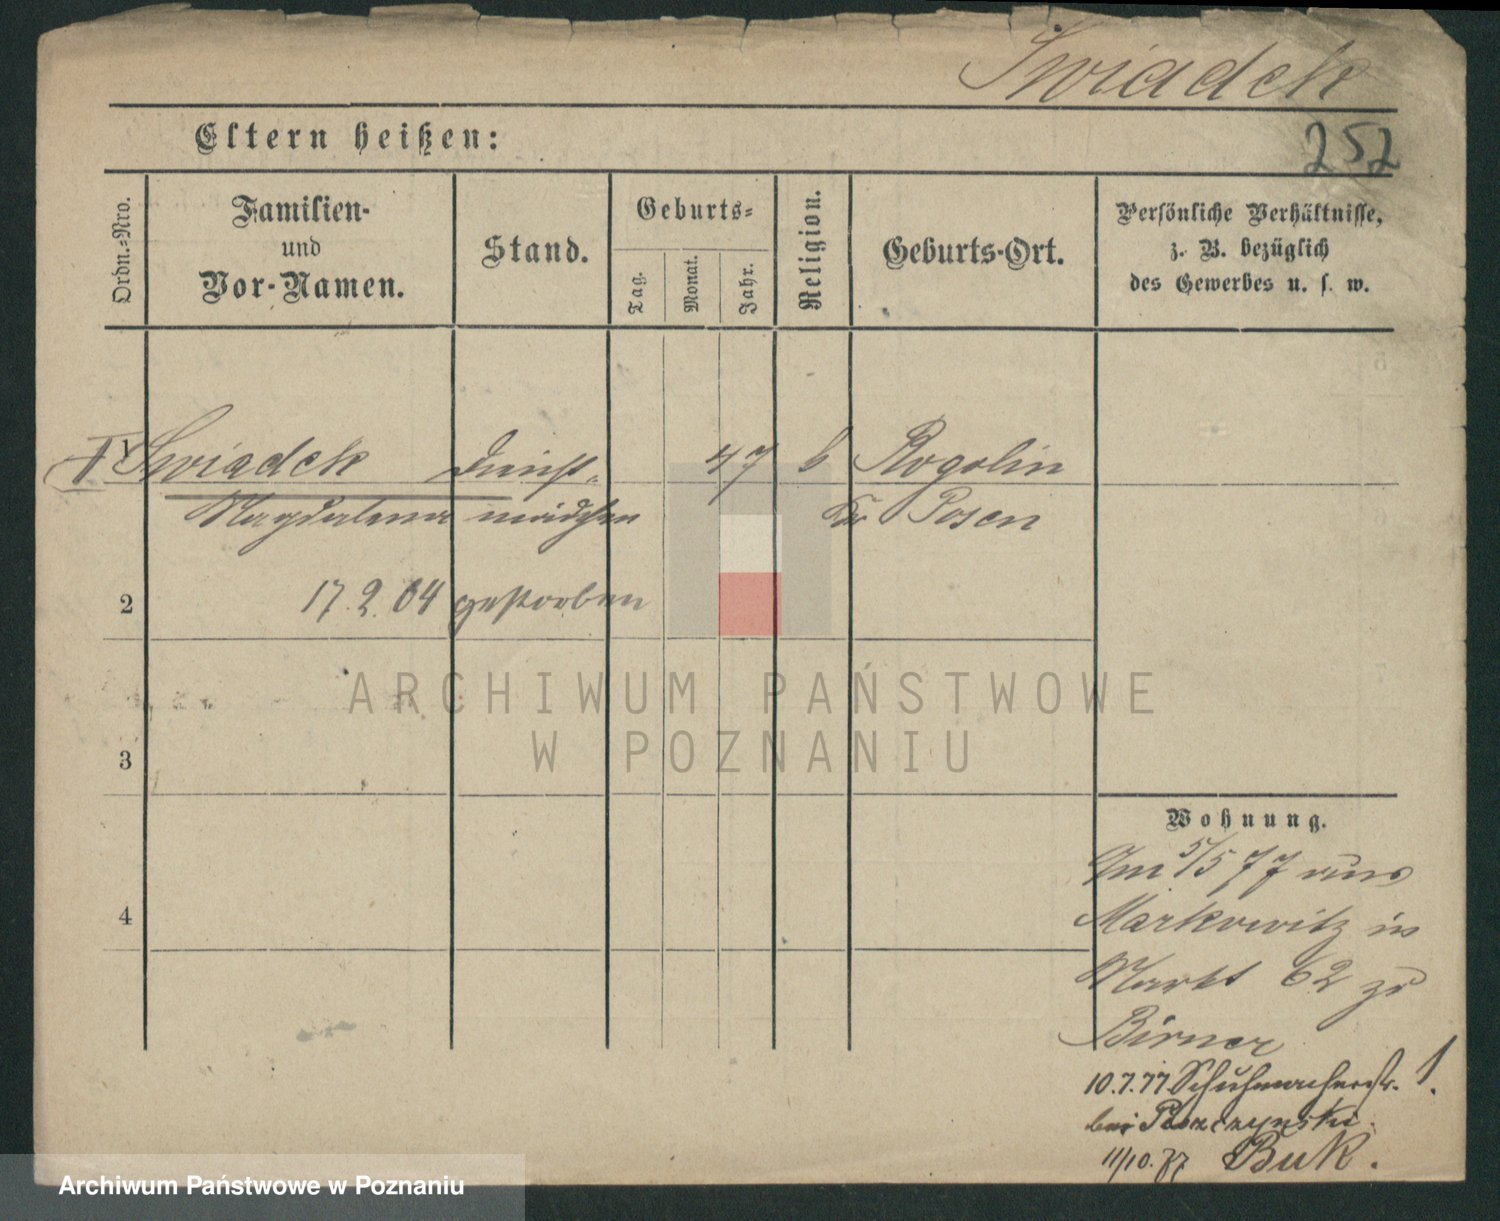 Swiadek
252
Eltern heißen:
Ordn.-Nro.
Familien-
und
Vor-Namen.
Stand.
Geburts-
Tag.
Monat.
Jahr.
Religion.
Geburts-Ort.
Persönliche Verhältnisse,
z. B. bezüglich
des Gewerbes u. s. w.
1 Swiadek Dienst- 47 k Rogolin
Magdalena mädchen Kr Posen
2 17.2.04 gestorben
3
4
Wohnung.
Am 5/5 77 aus
Markowitz in
Markt 62 zu
Birner
10.7.77 Schuhmacherstr. 1.
bei
11/10.77 Buk.
ARCHIWUM PAŃSTWOWE
W POZNANIU
Archiwum Państwowe w Poznaniu